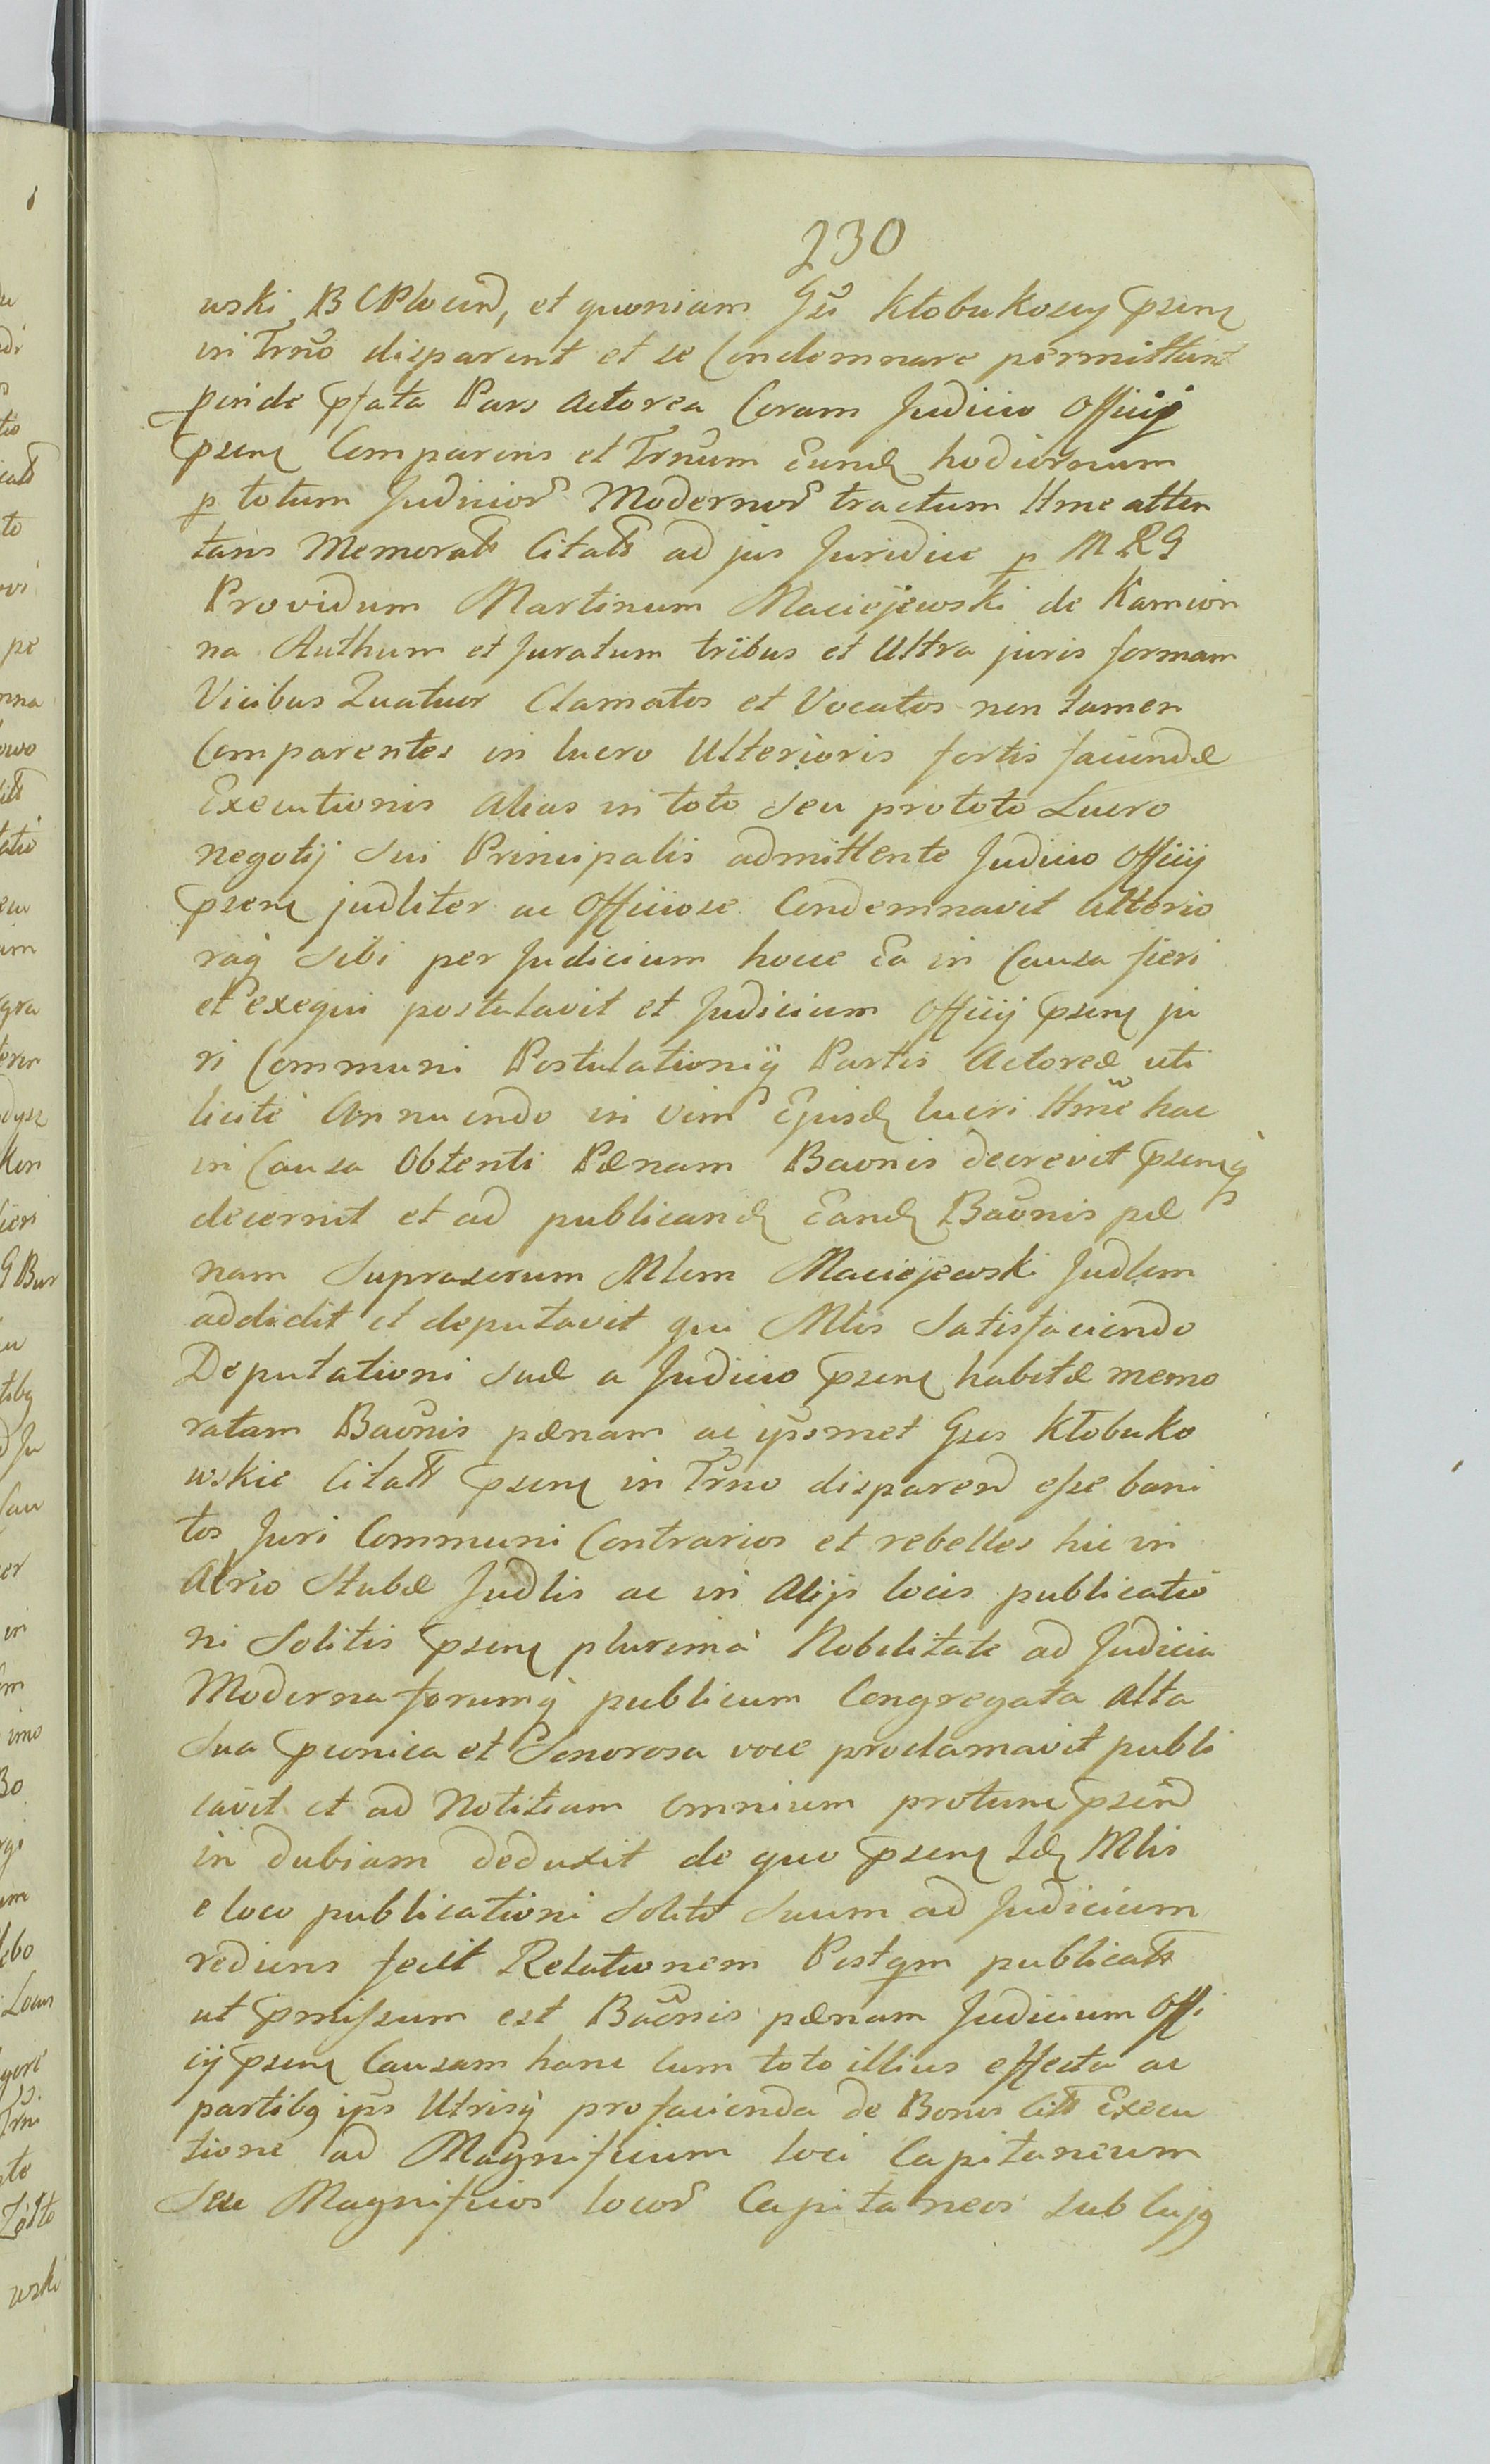 230
wski B C Plocen, et quoniam Gsi Kłobukoscy psenꝫ
in Trno disparent et se Condemnare permittunt
perinde pfata Pars Actorea Coram Judicio Officij
psenꝫ Comparens et Trnum Eundꝫ hodiernum
p totum Judicior Modernor tractum ttme atten
tans Memorats Citats ad jus Juridice p M R G
Providum Martinum Maciejewski de Kamion
na Authum et Juratum tribus et Ultra juris formam
Vicibus Quatuor Clamatos et Vocatos non tamen
Comparentes in lucro Ulterioris fortis faciendæ
Executionis Alias in toto Seu pro toto Lucro
negotij Sui Principalis admittente Judicio Officij
psenꝫ judliter ac Officiose Condemnavit Ulterio
raq Sibi per Judicium hocce Ea in Causa fieri
et exequi postulavit et Judicium Officij psenꝫ ju
ri Communi Postulationiq Partis Actoreæ uti
licite Annuendo in vim Ejusdꝫ lucri ttme hac
in Causa Obtenti Pænam Baonis decrevit psenꝫq
decernit et ad publicandꝫ Eandꝫ Baonis pæ
nam Suprascrum Mlem Maciejewski Judlem
addidit et deputavit qui Mlis Satisfaciendo
Deputationi Suæ a Judicio psenꝫ habitæ memo
ratam Baonis pænam ac ipsosmet Gsos Kłobuko
wskie Citats psenꝫ in Trno disparen esse bani
tos Juri Communi Contrarios et rebelles hic in
Atrio Stubæ Judlis ac in Alijs locis publicatio
ni Solitis psenꝫ plurima Nobilitate ad Judicia
Moderna forumq publicum Congregata Alta
Sua pconica et Sonorosa voce proclamavit publi
cavit et ad Notitiam omnium protunc psen
in dubiam deduxit de quo psenꝫ Idꝫ Mlis
e loco publicationi Solito Suum ad Judicium
rediens fecit Relationem Postqm publicats
ut pmissum est Baonis pænam Judicium Offi
cij psenꝫ Causam hanc Cum toto illius effectu ac
partibq ips Utrisq pro facienda de Bonis Citt Execu
tione ad Magnificum loci Capitaneum
Seu Magnificos locor Capitaneos sub Cujq